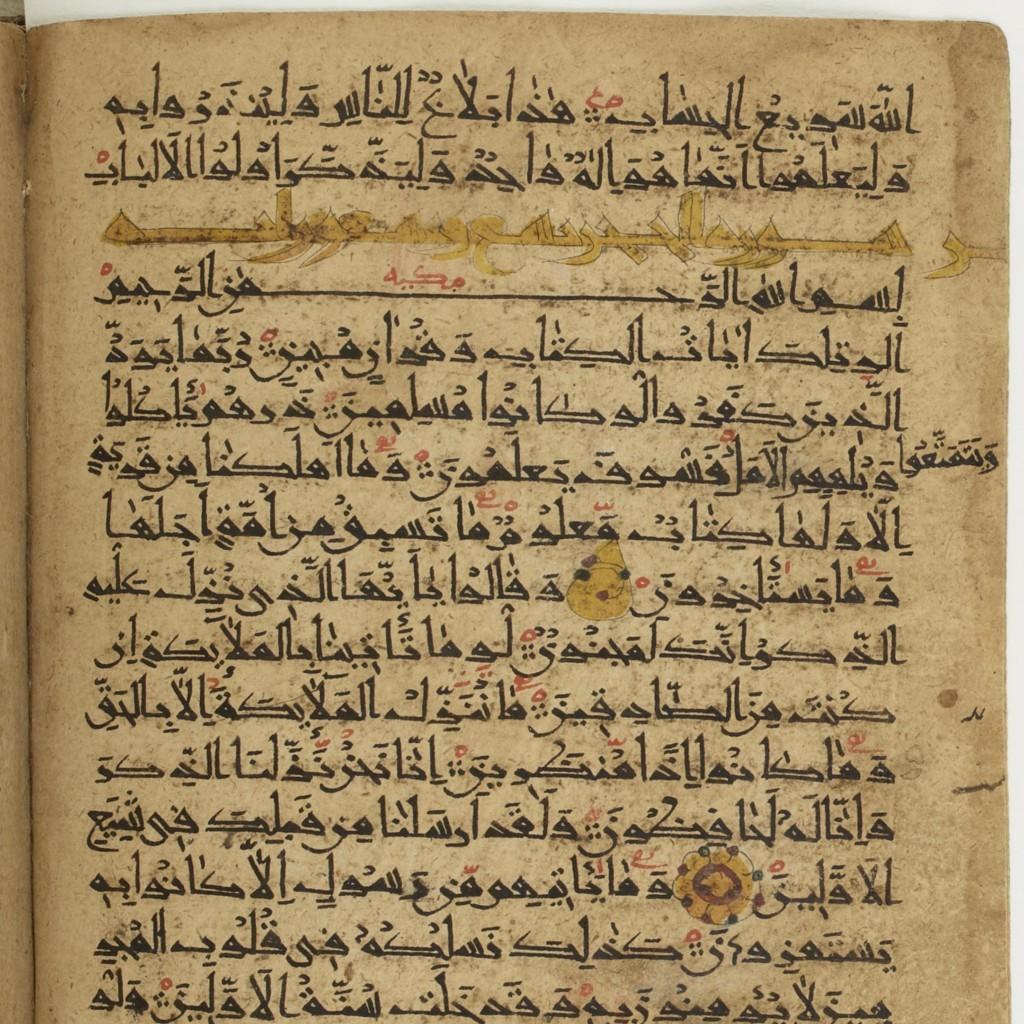 الله سريع الحساب هذا بلاغ للناس ولينذروا به
وليعلموا أنما هو إله واحد وليذكر أولوا الألباب
سورة الحجر تسع وتسعون آية
بسم الله الرحمن الرحيم
مكية
الر تلك ءايت الكتب وقرءان مبين ربما يود
الذين كفروا لو كانوا مسلمين ذرهم يأكلوا
ويتمتعوا
ويلههم الأمل فسوف يعلمون وما أهلكنا من قرية
إلا ولها كتاب معلوم ما تسبق من أمة أجلها
وما يستأخرون وقالوا يا أيها الذي نزل عليه
الذكر إنك لمجنون لو ما تأتينا بالملائكة إن
كنت من الصادقين ما ننزل الملائكة إلا بالحق
وما كانوا إذا منظرين إنا نحن نزلنا الذكر
وإنا له لحافظون ولقد أرسلنا من قبلك في شيع
الأولين وما يأتيهم من رسول إلا كانوا به
يستهزءون كذلك نسلكه في قلوب المجر
مين لا يؤمنون به وقد خلت سنة الأولين ولو